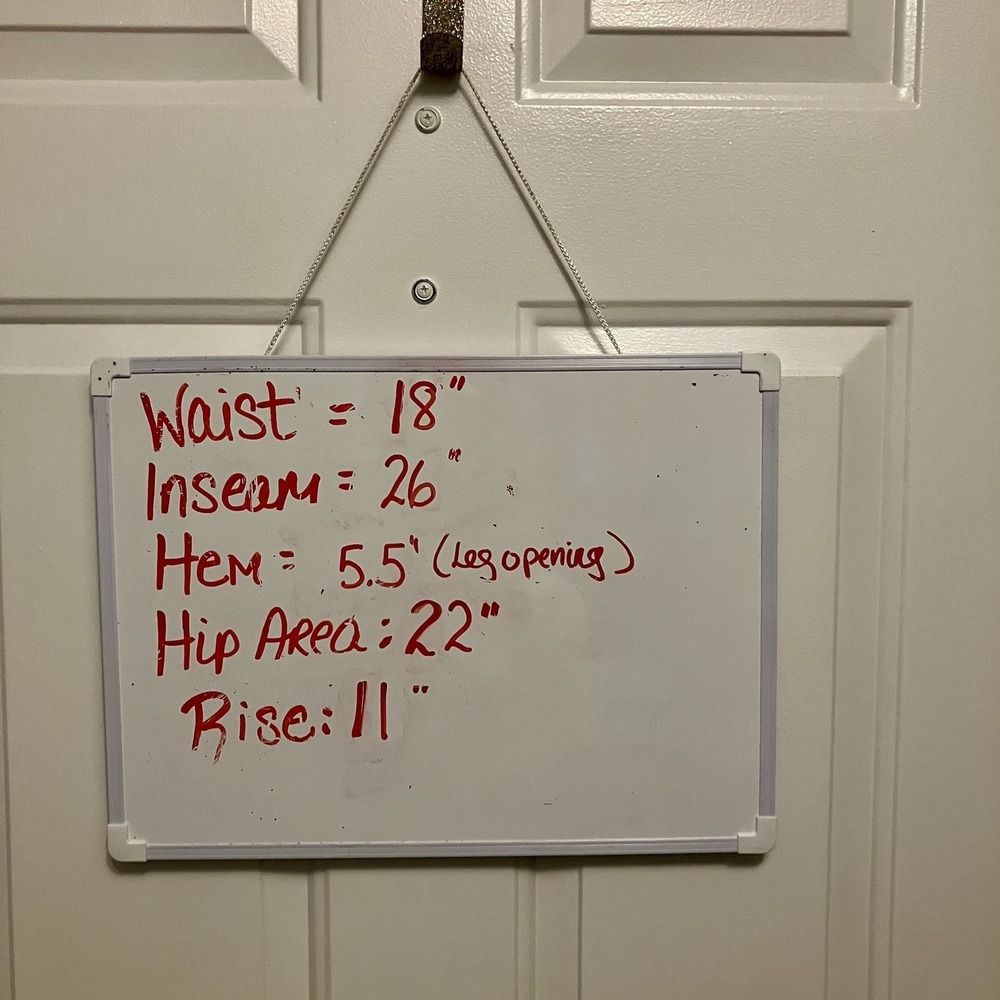 Waist = 18"
Inseam = 26"
Hem = 5.5" (Leg opening)
Hip Area: 22"
Rise: 11"